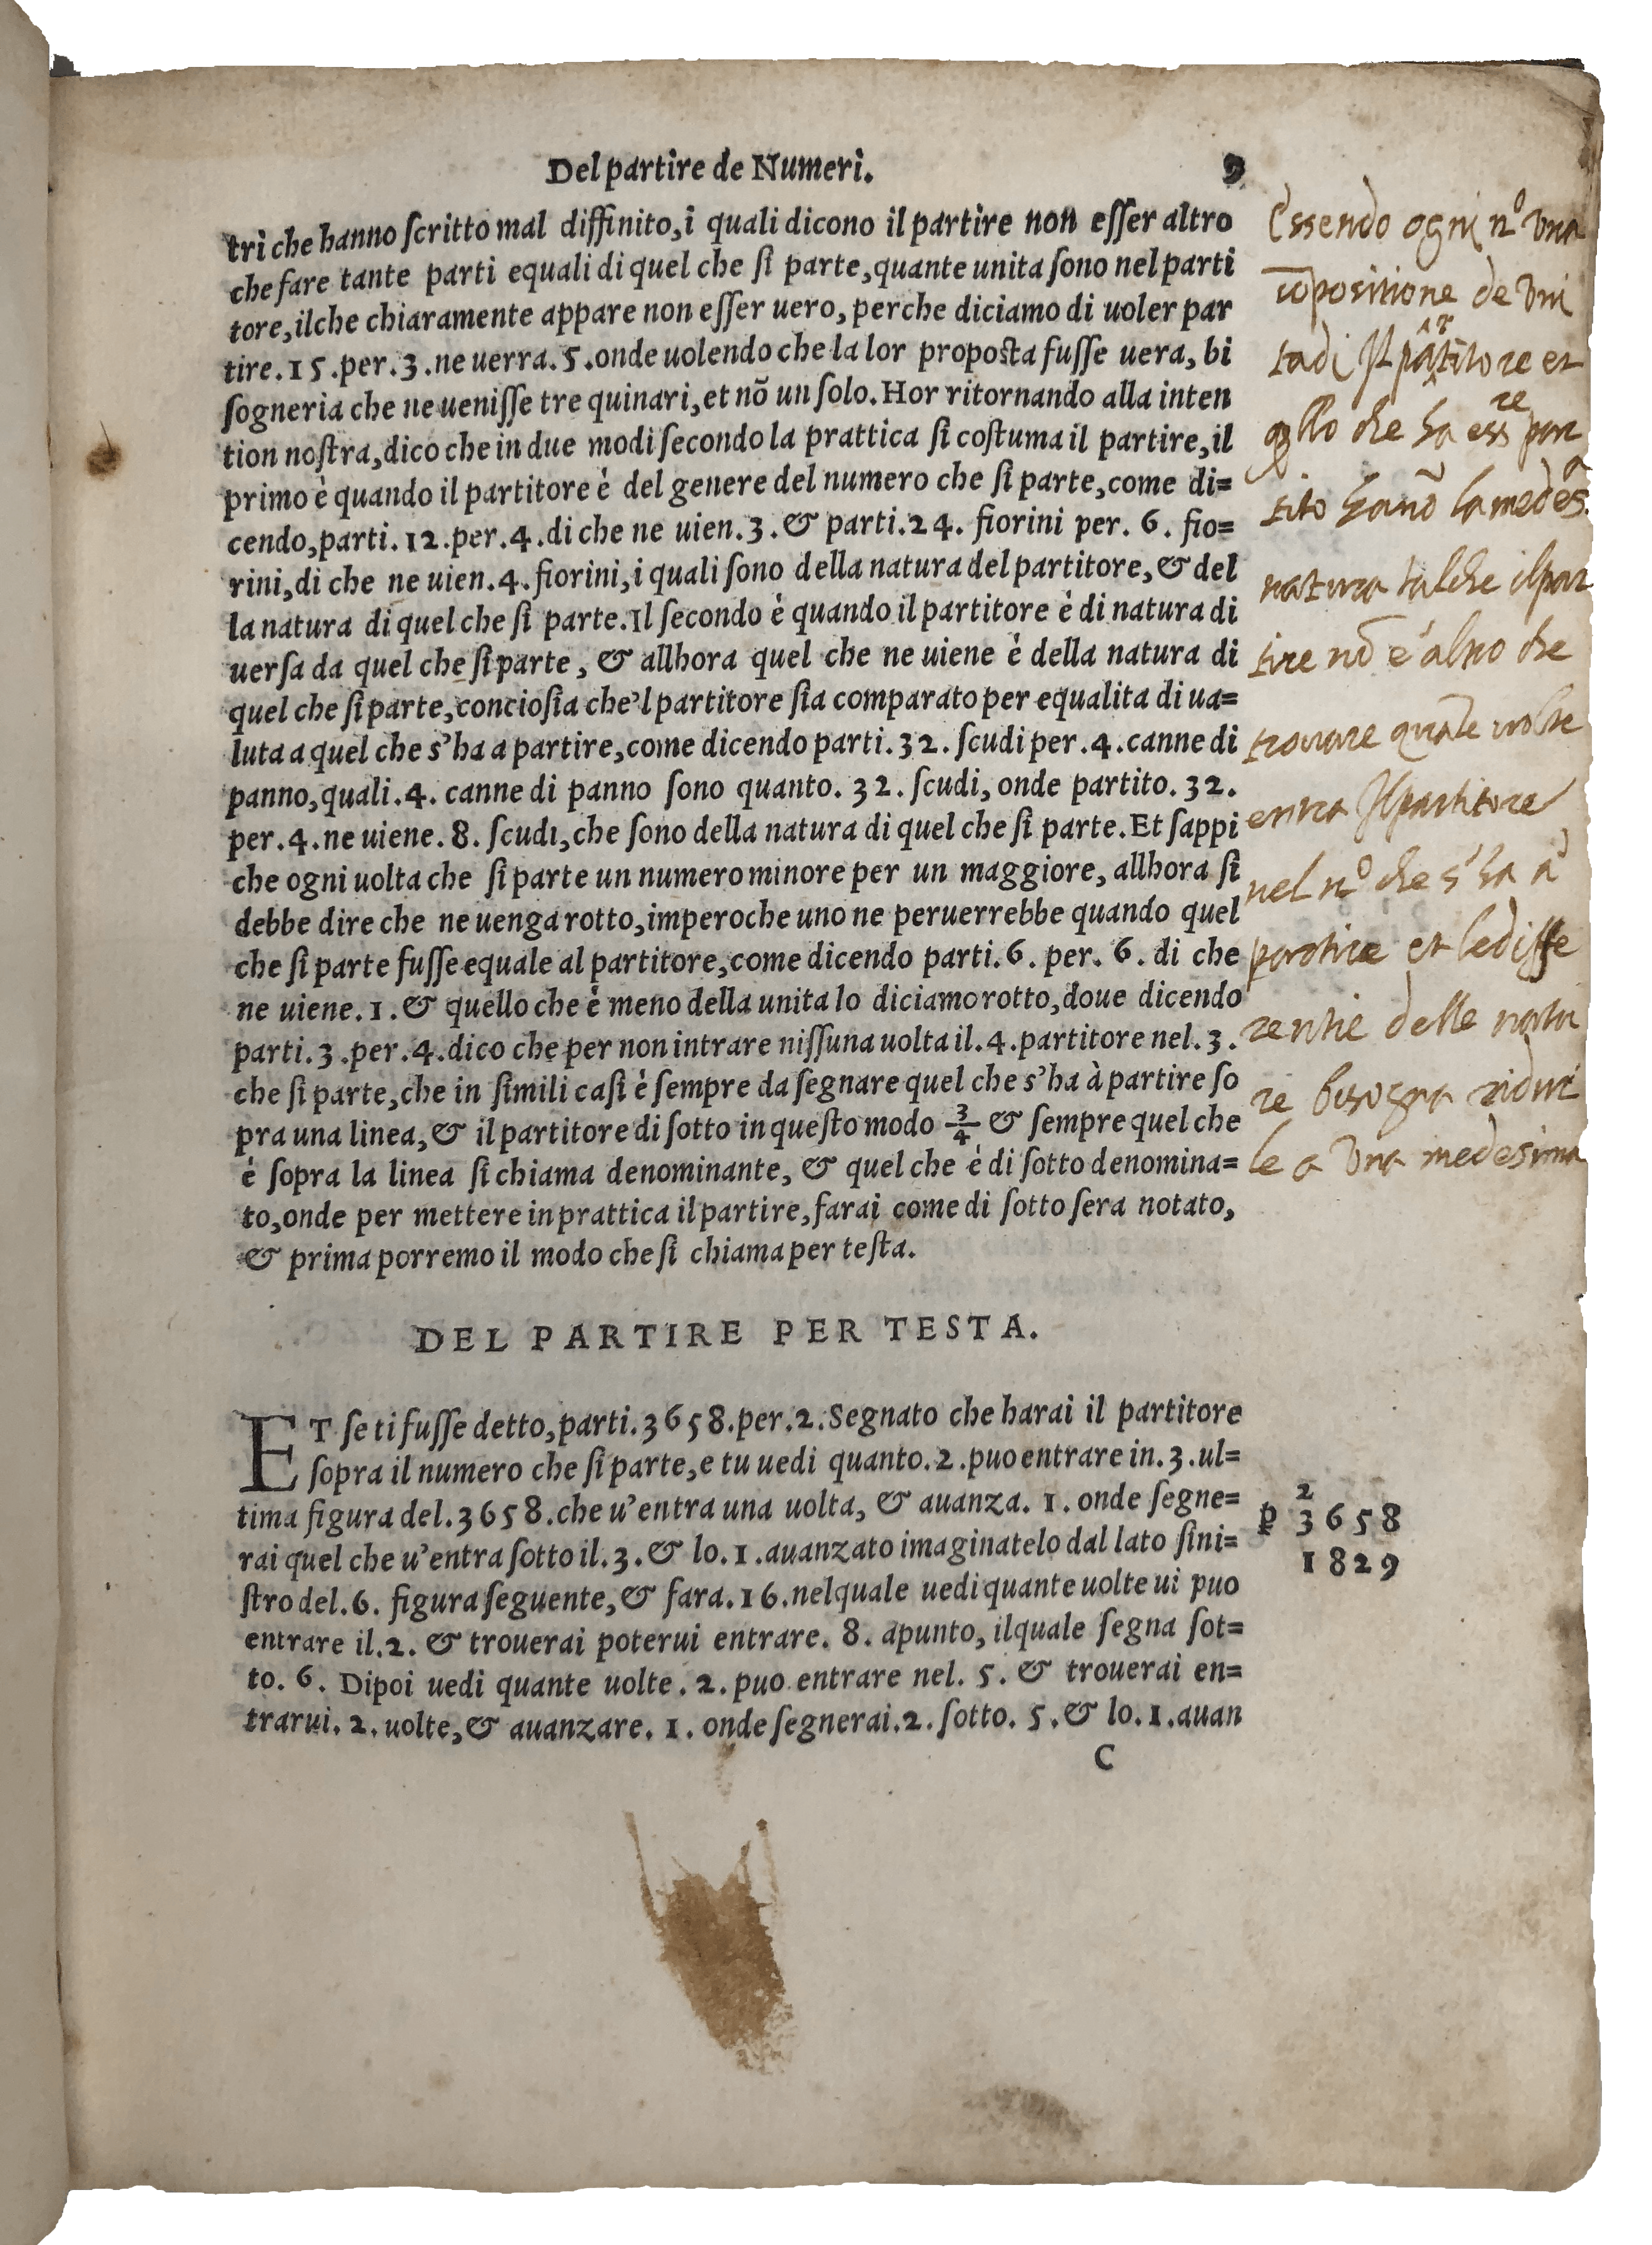 Del partire de Numeri. 9
tri che hanno ſcritto mal diffinito, i quali dicono il partire non eſſer altro
che fare tante parti equali di quel che ſi parte, quante unita ſono nel parti
tore, ilche chiaramente appare non eſſer uero, perche diciamo di uoler par
tire. 15. per. 3. ne uerra. 5. onde uolendo che la lor propoſta fuſſe uera, bi
ſogneria che ne ueniſſe tre quinari, et nõ un ſolo. Hor ritornando alla inten
tion noſtra, dico che in due modi ſecondo la prattica ſi coſtuma il partire, il
primo è quando il partitore è del genere del numero che ſi parte, come di=
cendo, parti. 12. per. 4. di che ne uien. 3. & parti. 24. fiorini per. 6. fio=
rini, di che ne uien. 4. fiorini, i quali ſono della natura del partitore, & del
la natura di quel che ſi parte. Il ſecondo è quando il partitore è di natura di
uerſa da quel che ſi parte, & allhora quel che ne uiene è della natura di
quel che ſi parte, concioſia che'l partitore ſia comparato per equalita di ua=
luta a quel che s'ha a partire, come dicendo parti. 32. ſcudi per. 4. canne di
panno, quali. 4. canne di panno ſono quanto. 32. ſcudi, onde partito. 32.
per. 4. ne uiene. 8. ſcudi, che ſono della natura di quel che ſi parte. Et ſappi
che ogni uolta che ſi parte un numero minore per un maggiore, allhora ſi
debbe dire che ne uenga rotto, imperoche uno ne peruerrebbe quando quel
che ſi parte fuſſe equale al partitore, come dicendo parti. 6. per. 6. di che
ne uiene. 1. & quello che è meno della unita lo diciamo rotto, doue dicendo
parti. 3. per. 4. dico che per non intrare niſſuna uolta il. 4. partitore nel. 3.
che ſi parte, che in ſimili caſi è ſempre da ſegnare quel che s'ha à partire ſo
pra una linea, & il partitore di ſotto in queſto modo 3/4 & ſempre quel che
è ſopra la linea ſi chiama denominante, & quel che è di ſotto denomina=
to, onde per mettere in prattica il partire, farai come di ſotto ſera notato,
& prima porremo il modo che ſi chiama per teſta.
Essendo ogni nº una
cõpositione de uni
tadi Il partitore et
qllo che ha essre par
tito hanõ la medesa.
natura talche il par
tire nõ è altro che
trovare quãte volte
entra Il partitore
nel nº che s'ha à
partire et le diffe
rentie delle natu
re bisogna ridur
le a una medesima
DEL PARTIRE PER TESTA.
ET ſe ti fuſſe detto, parti. 3658. per. 2. Segnato che harai il partitore
ſopra il numero che ſi parte, e tu uedi quanto. 2. puo entrare in. 3. ul=
tima figura del. 3658. che u'entra una uolta, & auanza. 1. onde ſegne=
rai quel che u'entra ſotto il. 3. & lo. 1. auanzato imaginatelo dal lato ſini=
ſtro del. 6. figura ſeguente, & fara. 16. nel quale uedi quante uolte ui puo
entrare il. 2. & trouerai poterui entrare. 8. apunto, ilquale ſegna ſot=
to. 6. Dipoi uedi quante uolte. 2. puo entrare nel. 5. & trouerai en=
trarui. 2. uolte, & auanzare. 1. onde ſegnerai. 2. ſotto. 5. & lo. 1. auan
C
2
ꝑ 3658
1829